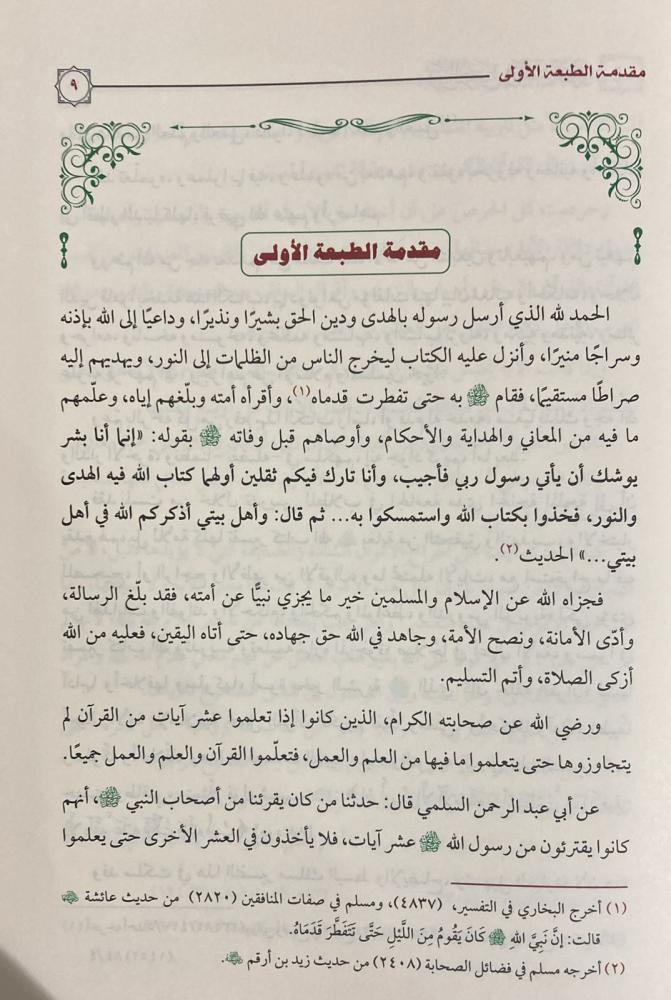 مقدمة الطبعة الأولى
٩
مقدمة الطبعة الأولى
الحمد لله الذي أرسل رسوله بالهدى ودين الحق بشيرًا ونذيرًا، وداعيًا إلى الله بإذنه
وسراجًا منيرًا، وأنزل عليه الكتاب ليخرج الناس من الظلمات إلى النور، ويهديهم إليه
صراطًا مستقيمًا، فقام ﷺ به حتى تفطرت قدماه(١)، وأقرأه أمته وبلّغهم إياه، وعلّمهم
ما فيه من المعاني والهداية والأحكام، وأوصاهم قبل وفاته ﷺ بقوله: «إنما أنا بشر
يوشك أن يأتي رسول ربي فأجيب، وأنا تارك فيكم ثقلين أولهما كتاب الله فيه الهدى
والنور، فخذوا بكتاب الله واستمسكوا به... ثم قال: وأهل بيتي أذكركم الله في أهل
بيتي...» الحديث(٢).
فجزاه الله عن الإسلام والمسلمين خير ما يجزي نبيًّا عن أمته، فقد بلّغ الرسالة،
وأدّى الأمانة، ونصح الأمة، وجاهد في الله حق جهاده، حتى أتاه اليقين، فعليه من الله
أزكى الصلاة، وأتم التسليم.
ورضي الله عن صحابته الكرام، الذين كانوا إذا تعلموا عشر آيات من القرآن لم
يتجاوزوها حتى يتعلموا ما فيها من العلم والعمل، فتعلّموا القرآن والعلم والعمل جميعًا.
عن أبي عبد الرحمن السلمي قال: حدثنا من كان يقرئنا من أصحاب النبي ﷺ، أنهم
كانوا يقترئون من رسول الله ﷺ عشر آيات، فلا يأخذون في العشر الأخرى حتى يعلموا
(١) أخرج البخاري في التفسير، (٤٨٣٧)، ومسلم في صفات المنافقين (٢٨٢٠) من حديث عائشة
قالت: إنَّ نَبِيَّ اللهِ ﷺ كَانَ يَقُومُ مِنَ اللَّيْلِ حَتَّى تَتَفَطَّرَ قَدَمَاهُ.
(٢) أخرجه مسلم في فضائل الصحابة (٢٤٠٨) من حديث زيد بن أرقم .